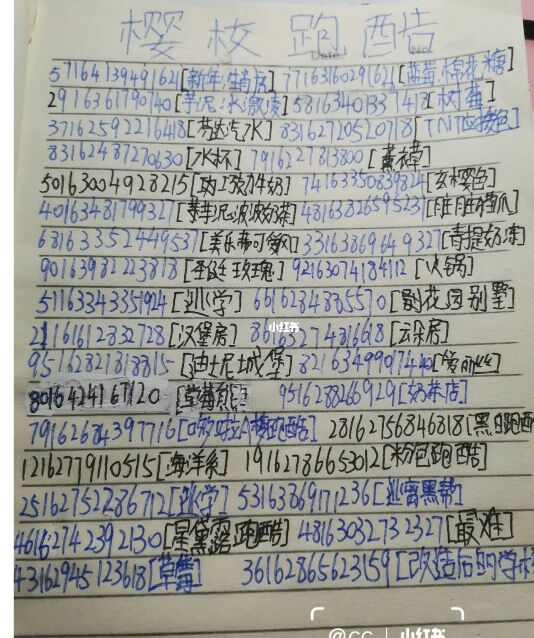 樱校跑酷
Date. No.
5716413949162[新年:生肖房] 771631602916​24[蓝莓棉花糖]
2916361790740[芋泥冰激凌] 5816340133748[树莓]
3716259221648[芬达汽水] 8316272052078[TNT应援色]
8316248727063​0[水杯] 7916227813800[薰衣草]
5016300492825[巧克力牛奶] 7416335083982​4[玄樱色]
4016348179932​7[芋泥波波奶茶] 4816382659523​7
6816335244953​7[美乐蒂可爱风] 3316386964932​7[青提奶冻]
9016398222388[圣诞玫瑰] 9216307418412[火锅]
5116334335924[逃学] 6616284835570[副花园别墅]
2116161283272​8[汉堡房] 8616527481668[云朵房]
9516282188815[迪士尼城堡] 8216349907440[爱丽丝]
8016424167120[草莓熊] 9516288266929[奶茶店]
7916268439771​6 2816275684688[黑白跑酷
1216277911055[海洋系] 1916278665302[粉色跑酷]
2516275228671​2[逃学] 5316386917236[逃离黑帮]
4616274239230[呆黛露跑酷] 4816303273232​7[最难]
4316294512368[草莓] 3616286562359[改造后的学校
小红书
@CC 小红书